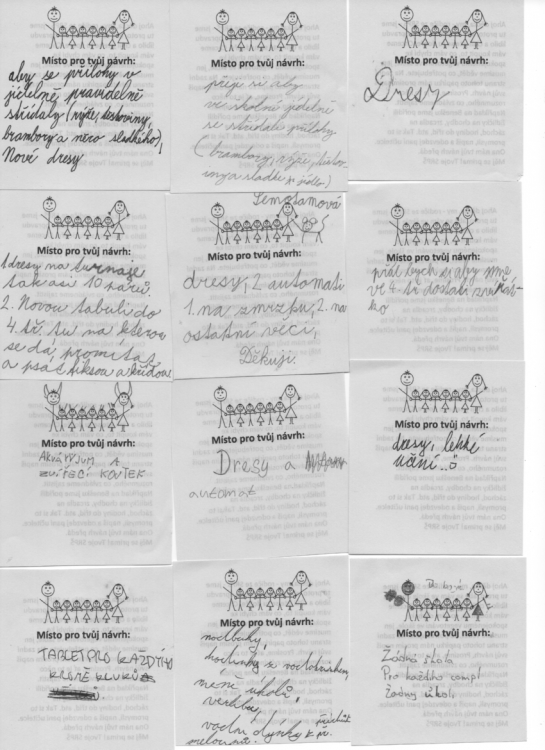 Místo pro tvůj návrh:
aby se přílohy v
jídelně pravidelně
střídaly (rýže, těstoviny,
brambory a něco sladkého),
Nové dresy
Místo pro tvůj návrh:
přeji si aby
ve školní jídelně
se střídali přílohy
(brambory, rýže, těstov
iny a sladké jídlo)
Místo pro tvůj návrh:
Dresy
Místo pro tvůj návrh:
1. dresy na turnaje
tak asi 10 párů.
2. Novou tabuli do
4. tř. tu na kterou
se dá, promítat
a psát fiksou a křídou
Místo pro tvůj návrh:
dresy, 2 automati
1. na zmrzlu, 2. na
ostatní veci,
Děkuji.
Místo pro tvůj návrh:
přál bych si aby sme
ve 4. tř dostali zvířát-
ko
Místo pro tvůj návrh:
AKVÁRIJUM A
ZVÍŘECÍ KOUTEK
Místo pro tvůj návrh:
Dresy a
automat
Místo pro tvůj návrh:
dresy, lehké
učení..
Místo pro tvůj návrh:
TABLET PRO KAŽDÝHO
KROMĚ KLUKŮ
Místo pro tvůj návrh:
noutbuky,
hodinky s
méně úkolů,
vodní dýnky
melounové.
Místo pro tvůj návrh:
Žádná škola
Pro každího comp!
Žadny úkoli